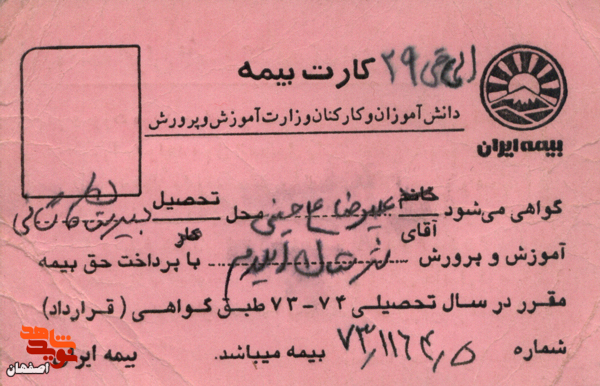 کارت بیمه ۲۹
دانش‌آموزان و کارکنان وزارت آموزش و پرورش
بیمه ایران
گواهی می‌شود خانم علیرضا حاجی محل تحصیل
آقای کار
آموزش و پرورش شهرستان با پرداخت حق بیمه
مقرر در سال تحصیلی ۷۴-۷۳ طبق گواهی (قرارداد)
شماره ۷۳٫۱۱۶۴٫۵ بیمه میباشد. بیمه ایران
نوید شاهد
اصفهان